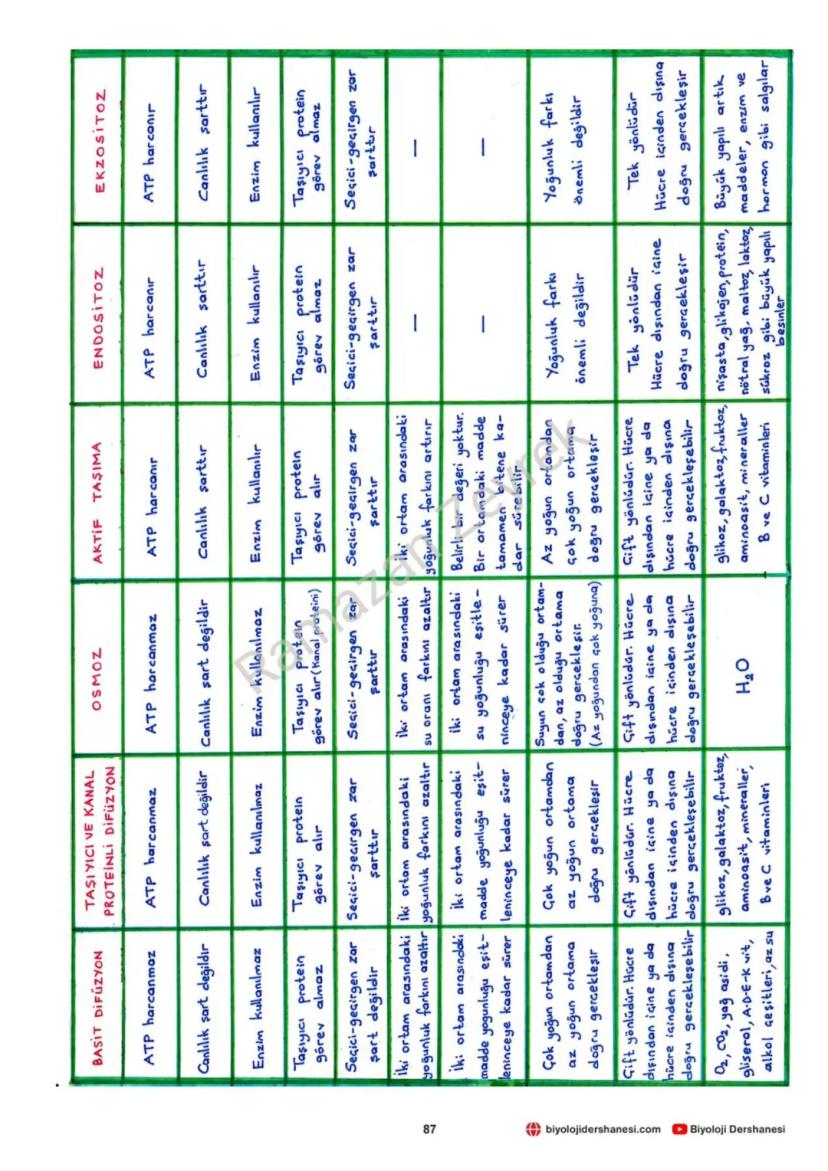 BASİT DİFÜZYON
TAŞIYICI VE KANAL
PROTEİNLİ DİFÜZYON
OSMOZ
AKTİF TAŞIMA
ENDOSİTOZ
EKZOSİTOZ
ATP harcanmaz
ATP harcanmaz
ATP harcanmaz
ATP harcanır
ATP harcanır
ATP harcanır
Canlılık şart değildir
Canlılık şart değildir
Canlılık şart değildir
Canlılık şarttır
Canlılık şarttır
Canlılık şarttır
Enzim kullanılmaz
Enzim kullanılmaz
Enzim kullanılmaz
Enzim kullanılır
Enzim kullanılır
Enzim kullanılır
Taşıyıcı protein
görev almaz
Taşıyıcı protein
görev alır
Taşıyıcı protein
görev alır (Kanal proteini)
Taşıyıcı protein
görev alır
Taşıyıcı protein
görev almaz
Taşıyıcı protein
görev almaz
Seçici-geçirgen zar
şart değildir
Seçici-geçirgen zar
şarttır
Seçici-geçirgen zar
şarttır
Seçici-geçirgen zar
şarttır
Seçici-geçirgen zar
şarttır
Seçici-geçirgen zar
şarttır
İki ortam arasındaki
yoğunluk farkını azaltır
İki ortam arasındaki
yoğunluk farkını azaltır
İki ortam arasındaki
su oranı farkını azaltır
İki ortam arasındaki
yoğunluk farkını artırır
—
—
İki ortam arasındaki
madde yoğunluğu eşit-
leninceye kadar sürer
İki ortam arasındaki
madde yoğunluğu eşit-
leninceye kadar sürer
İki ortam arasındaki
su yoğunluğu eşitle-
ninceye kadar sürer
Belirli bir değeri yoktur.
Bir ortamdaki madde
tamamen bitene ka-
dar sürebilir
—
—
Çok yoğun ortamdan
az yoğun ortama
doğru gerçekleşir
Çok yoğun ortamdan
az yoğun ortama
doğru gerçekleşir
Suyun çok olduğu ortam-
dan, az olduğu ortama
doğru gerçekleşir.
(Az yoğundan çok yoğuna)
Az yoğun ortamdan
çok yoğun ortama
doğru gerçekleşir
Yoğunluk farkı
önemli değildir
Yoğunluk farkı
önemli değildir
Çift yönlüdür. Hücre
dışından içine ya da
hücre içinden dışına
doğru gerçekleşebilir
Çift yönlüdür. Hücre
dışından içine ya da
hücre içinden dışına
doğru gerçekleşebilir
Çift yönlüdür. Hücre
dışından içine ya da
hücre içinden dışına
doğru gerçekleşebilir
Çift yönlüdür. Hücre
dışından içine ya da
hücre içinden dışına
doğru gerçekleşebilir
Tek yönlüdür
Hücre dışından içine
doğru gerçekleşir
Tek yönlüdür
Hücre içinden dışına
doğru gerçekleşir
O₂, CO₂, yağ asidi,
gliserol, A-D-E-K vit,
alkol çeşitleri, az su
glikoz, galaktoz, fruktoz,
aminoasit, mineraller,
B ve C vitaminleri
H₂O
glikoz, galaktoz, fruktoz,
aminoasit, mineraller
B ve C vitaminleri
nişasta, glikojen, protein,
nötral yağ. maltoz, laktoz,
sükroz gibi büyük yapılı
besinler
Büyük yapılı artık
maddeler, enzim ve
hormon gibi salgılar
Ramazan Zeyrek
87
biyolojidershanesi.com
Biyoloji Dershanesi